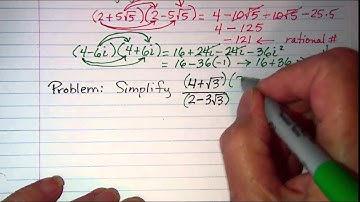 (2+5√5)(2-5√5) = 4-10√5+10√5-25·5
4-125
-121 ← rational #
(4-6i)(4+6i) = 16+24i-24i-36i²
= 16-36(-1) → 16+36
Problem: Simplify (4+√3)(
(2-3√3)